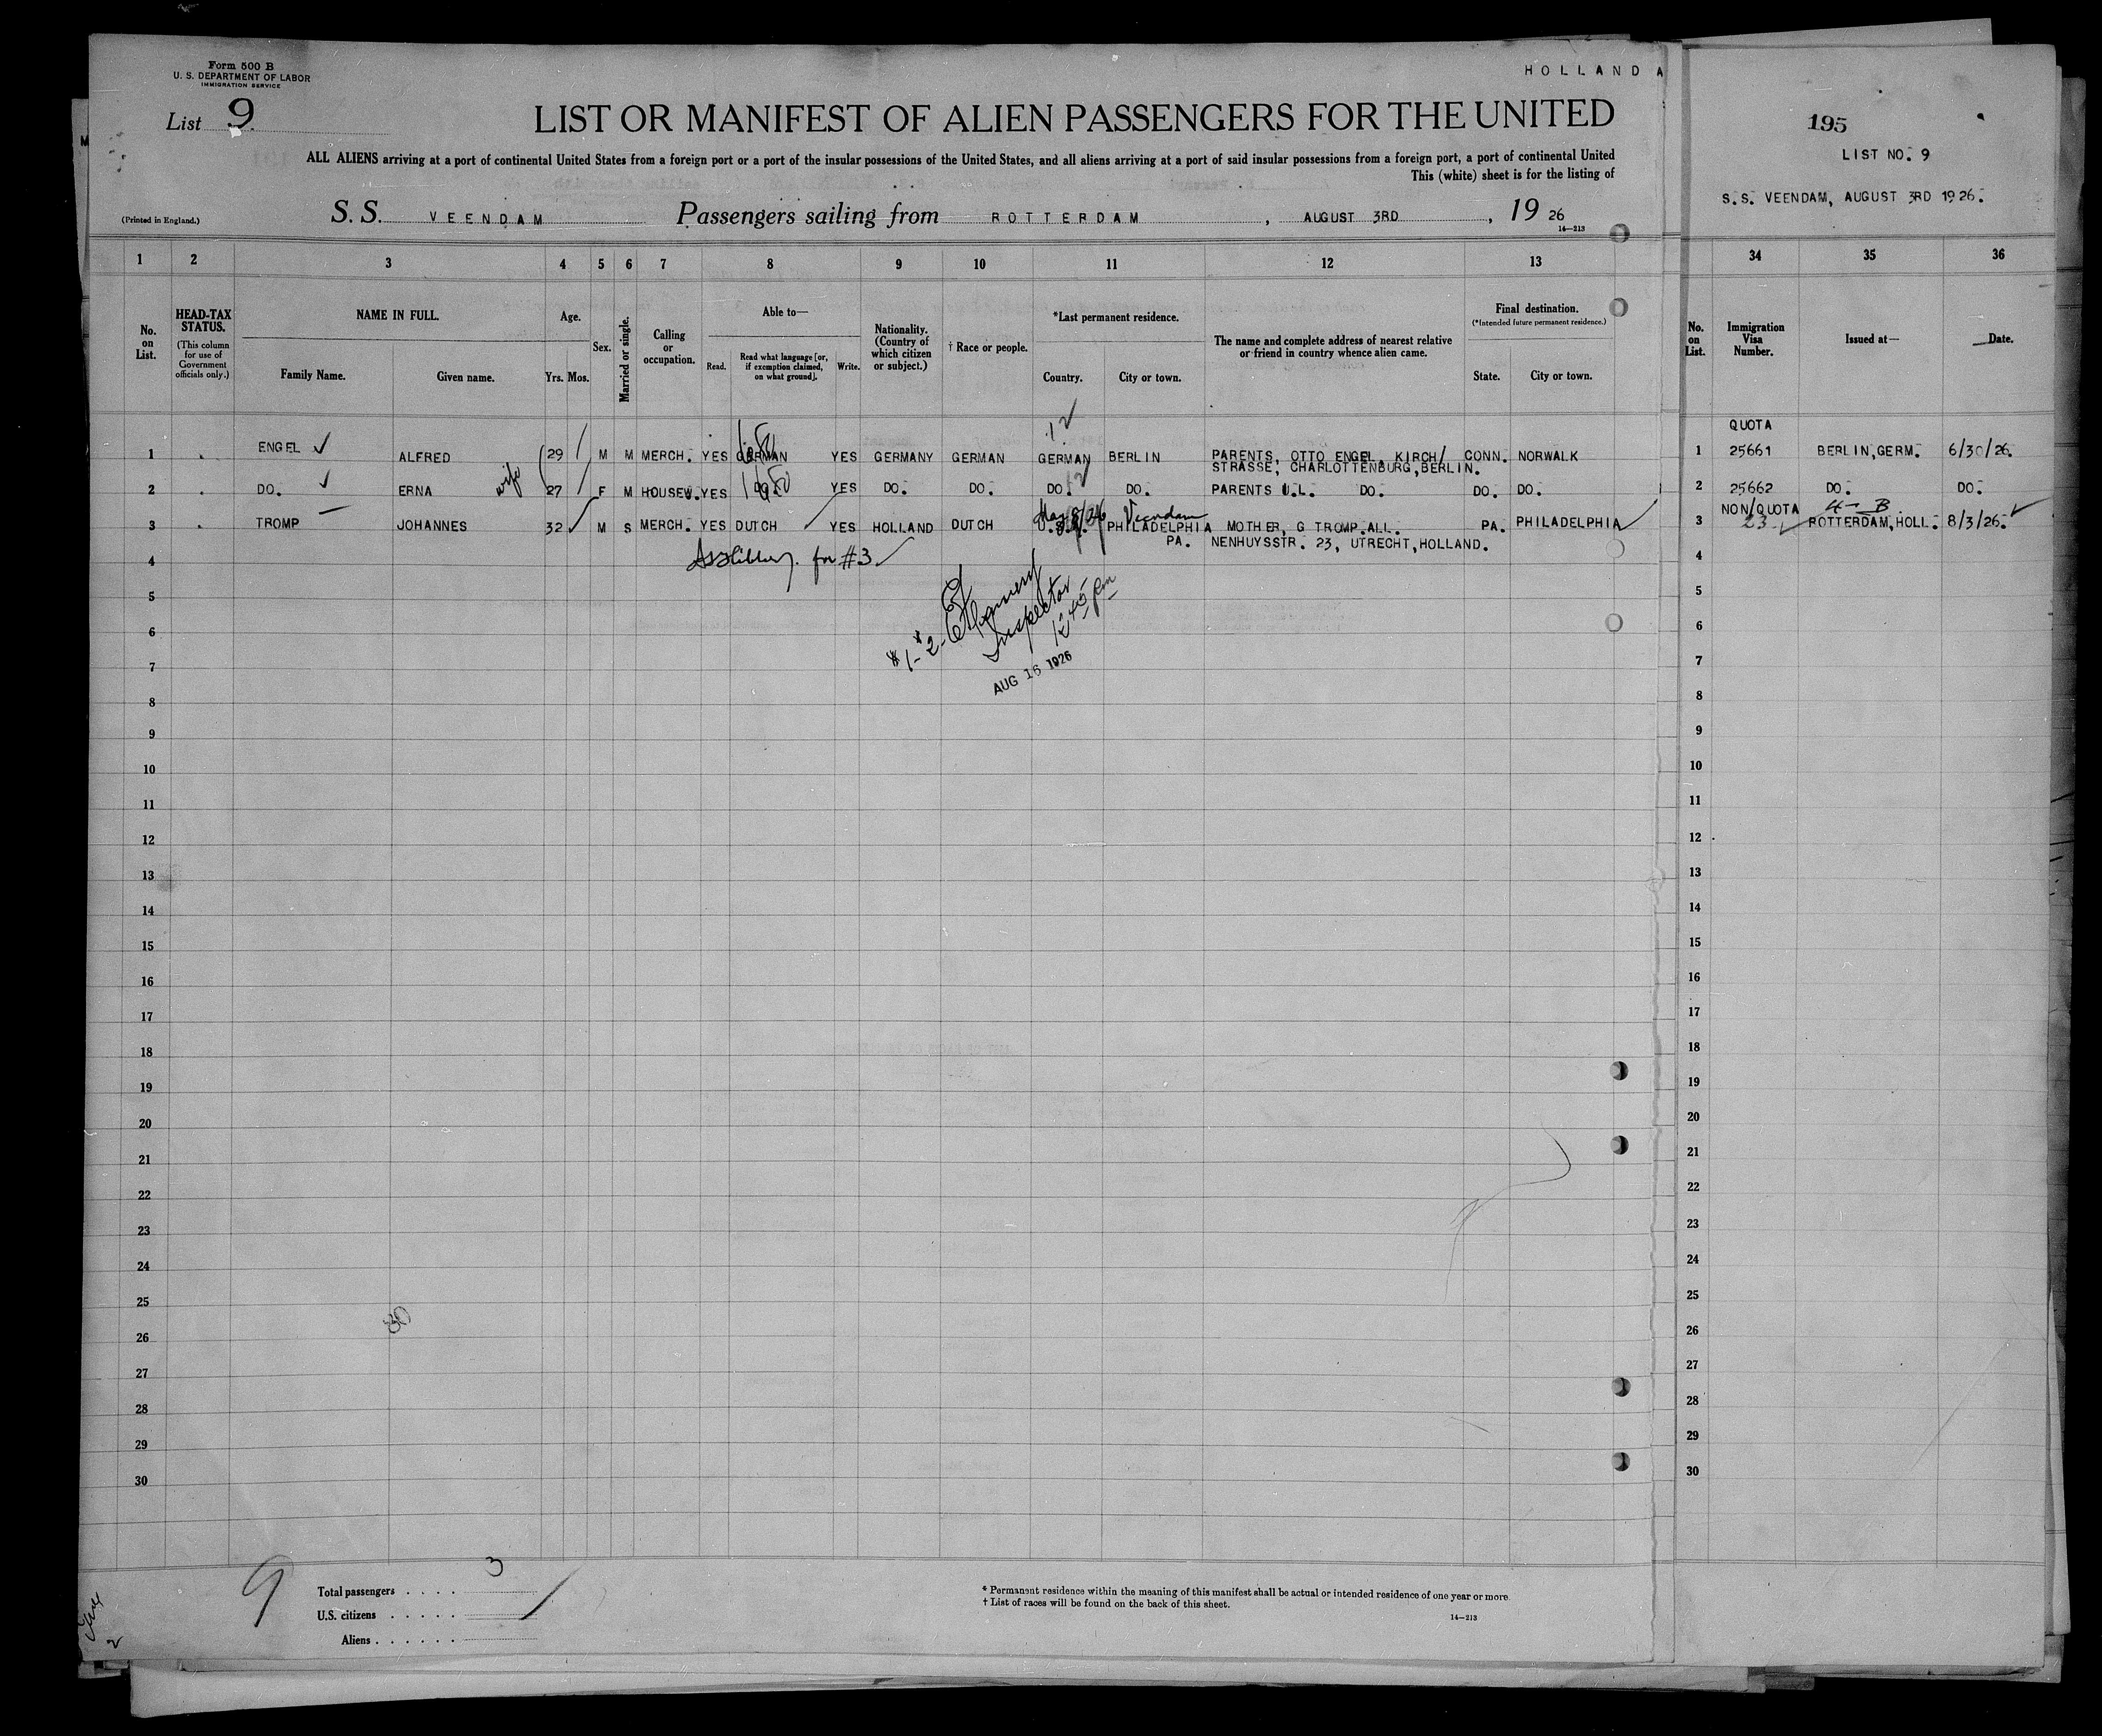 Form 500 B
U. S. DEPARTMENT OF LABOR
IMMIGRATION SERVICE
List 9
HOLLAND A
LIST OR MANIFEST OF ALIEN PASSENGERS FOR THE UNITED
ALL ALIENS arriving at a port of continental United States from a foreign port or a port of the insular possessions of the United States, and all aliens arriving at a port of said insular possessions from a foreign port, a port of continental United
This (white) sheet is for the listing of
(Printed in England.)
S. S. VEENDAM Passengers sailing from ROTTERDAM, AUGUST 3RD, 19 26
14—213
195
LIST NO. 9
S.S. VEENDAM, AUGUST 3RD 1926.
1 2 3 4 5 6 7 8 9 10 11 12 13 34 35 36
No. on List.
HEAD-TAX STATUS.
(This column for use of Government officials only.)
NAME IN FULL.
Family Name. Given name.
Age.
Yrs. Mos.
Sex.
Married or single.
Calling or occupation.
Able to—
Read. Read what language [or, if exemption claimed, on what ground]. Write.
Nationality. (Country of which citizen or subject.)
† Race or people.
*Last permanent residence.
Country. City or town.
The name and complete address of nearest relative or friend in country whence alien came.
Final destination.
(*Intended future permanent residence.)
State. City or town.
No. on List.
Immigration Visa Number.
Issued at—
Date.
12
QUOTA
1 ENGEL ✓ ALFRED 29 M M MERCH. YES GERMAN YES GERMANY GERMAN GERMAN BERLIN PARENTS, OTTO ENGEL, KIRCH/ CONN. NORWALK 1 25661 BERLIN,GERM. 6/30/26.
STRASSE, CHARLOTTENBURG,BERLIN.
2 DO. ✓ ERNA wife 27 F M HOUSEW. YES YES DO. DO. DO. DO. PARENTS U.L. DO. DO. DO. 2 25662 DO. DO.
NON/QUOTA 4-B
3 TROMP JOHANNES 32 ✓ M S MERCH. YES DUTCH ✓ YES HOLLAND DUTCH Veendam PHILADELPHIA MOTHER, G TROMP.ALL. PA. PHILADELPHIA 3 23 ✓ ROTTERDAM,HOLL. 8/3/26. ✓
PA. NENHUYSSTR. 23, UTRECHT,HOLLAND.
for #3 ✓
4 4
#1-#2-
Inspector
12 45 pm
AUG 16 1926
5 5
6 6
7 7
8 8
9 9
10 10
11 11
12 12
13 13
14 14
15 15
16 16
17 17
18 18
19 19
20 20
21 21
22 22
23 23
24 24
25 25
30
26 26
27 27
28 28
29 29
30 30
9
Total passengers . . . . 3
U.S. citizens . . . . . .
Aliens . . . . . .
* Permanent residence within the meaning of this manifest shall be actual or intended residence of one year or more.
† List of races will be found on the back of this sheet.
14—213
2